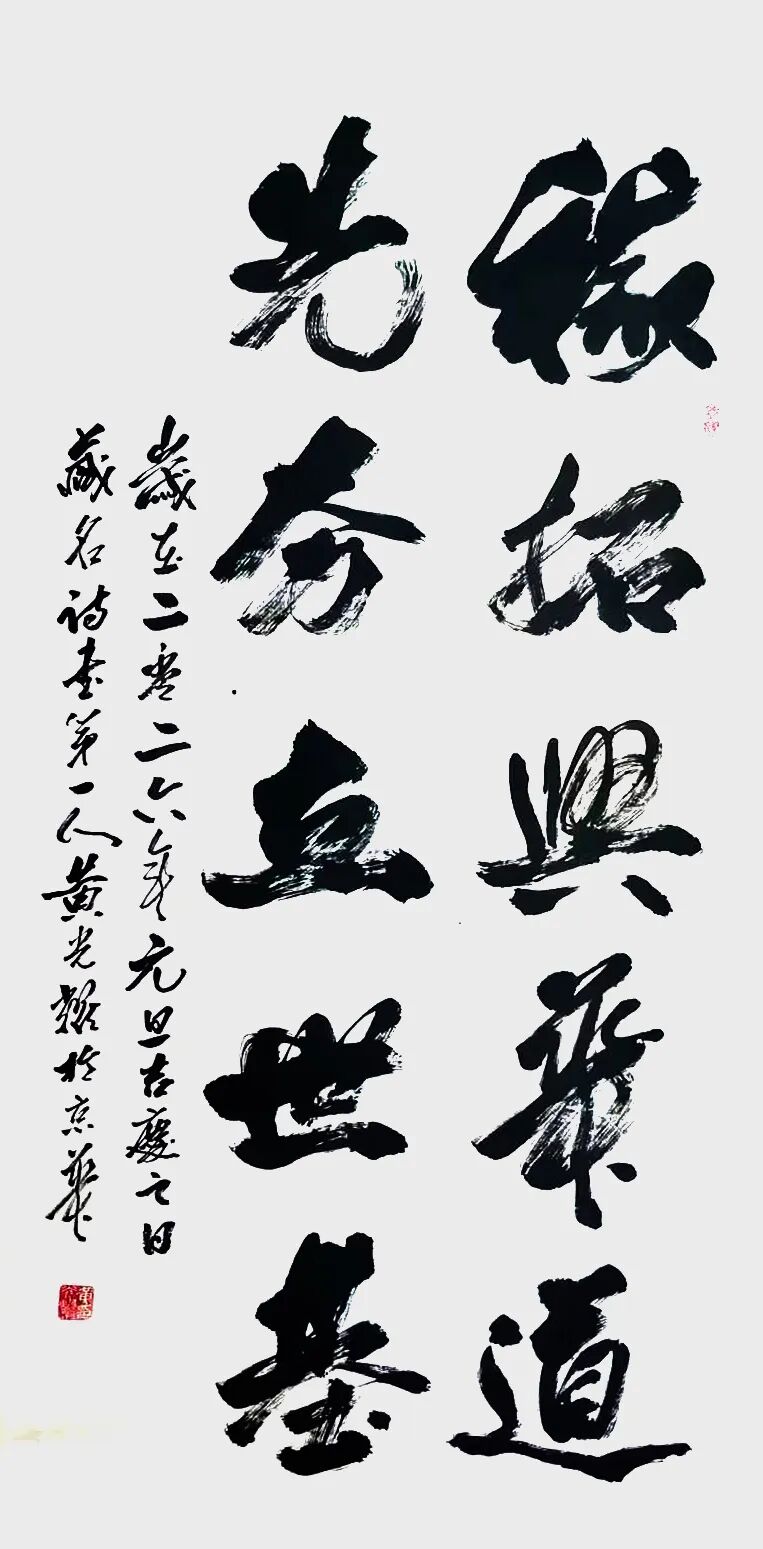 稼拓興華道
光夯立世基
歲在二零二六年元旦吉慶之日
藏名詩書第一人黄光於京華